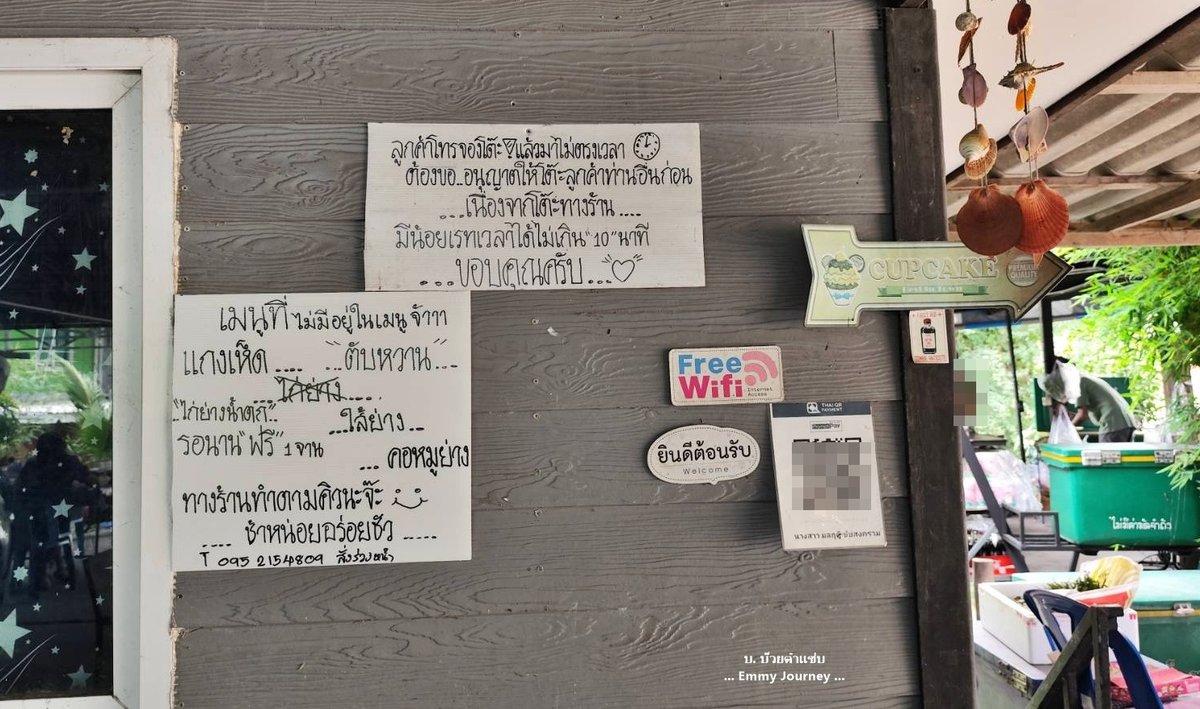 ลูกค้าโทรจองโต๊ะแล้วมาไม่ตรงเวลา
ต้องขอ..อนุญาตให้โต๊ะลูกค้าท่านอื่นก่อน
...เนื่องจากโต๊ะทางร้าน....
มีน้อยเรทเวลาได้ไม่เกิน "10" นาที
....ขอบคุณครับ...
เมนูที่ ไม่มีอยู่ในเมนู จ้าาา
แกงเห็ด .... "ตับหวาน"...
ไก่ย่าง....
"ไก่ย่างน้ำตก" ...ไส้ย่าง...
รอนาน "ฟรี" 1 จาน ... คอหมูย่าง
ทางร้านทำตามคิวนะจ๊ะ
.... ช้าหน่อยอร่อยชัว .....
T 095 2154809 สั่งล่วงหน้า
CUPCAKE
PREMIUM QUALITY
Free
Wifi
Internet Access
ยินดีต้อนรับ
Welcome
THAI QR
PAYMENT
PromptPay
ไม่มีค่ามัดจำถัง
บ. บ๊วยดำแซ่บ
... Emmy Journey ...